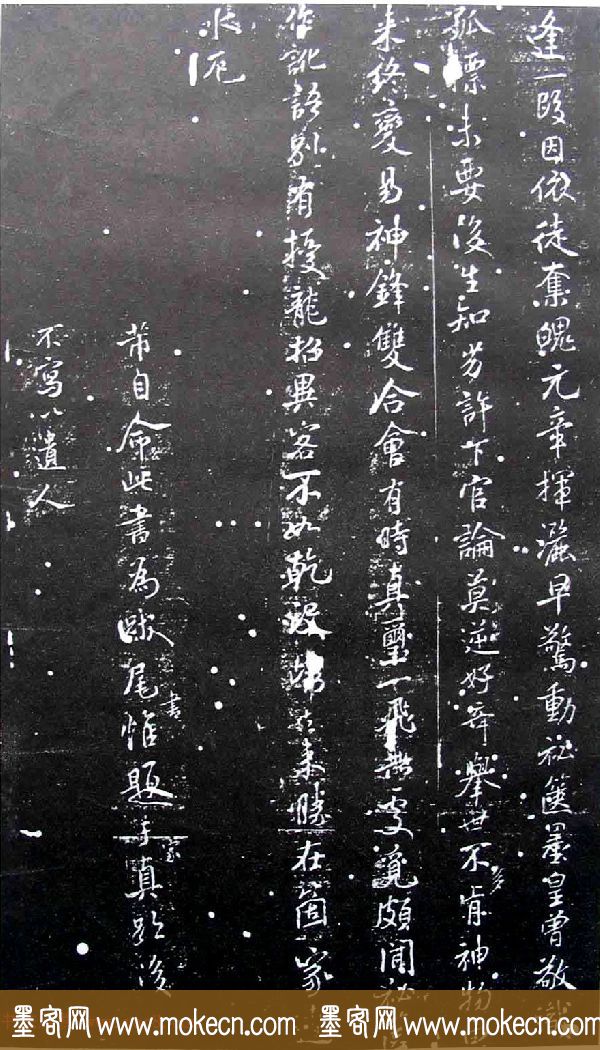 逢一段因依徒奪魄元章揮灑早驚動秘篋墨皇曾敬識
孤標未要後生知芳許下官論莫逆好奇舉世不肯多神物由
來終變易神鋒雙合會有時真璽一飛無處覓頗聞秘
作訛語别有授龍招異客不如乾没歸於未勝在箇家
水厄
芾自命此書為跋尾書惟題于真跡後
不寫以遺人
墨客网 www.mokecn.com 墨客网 www.mokecn.com